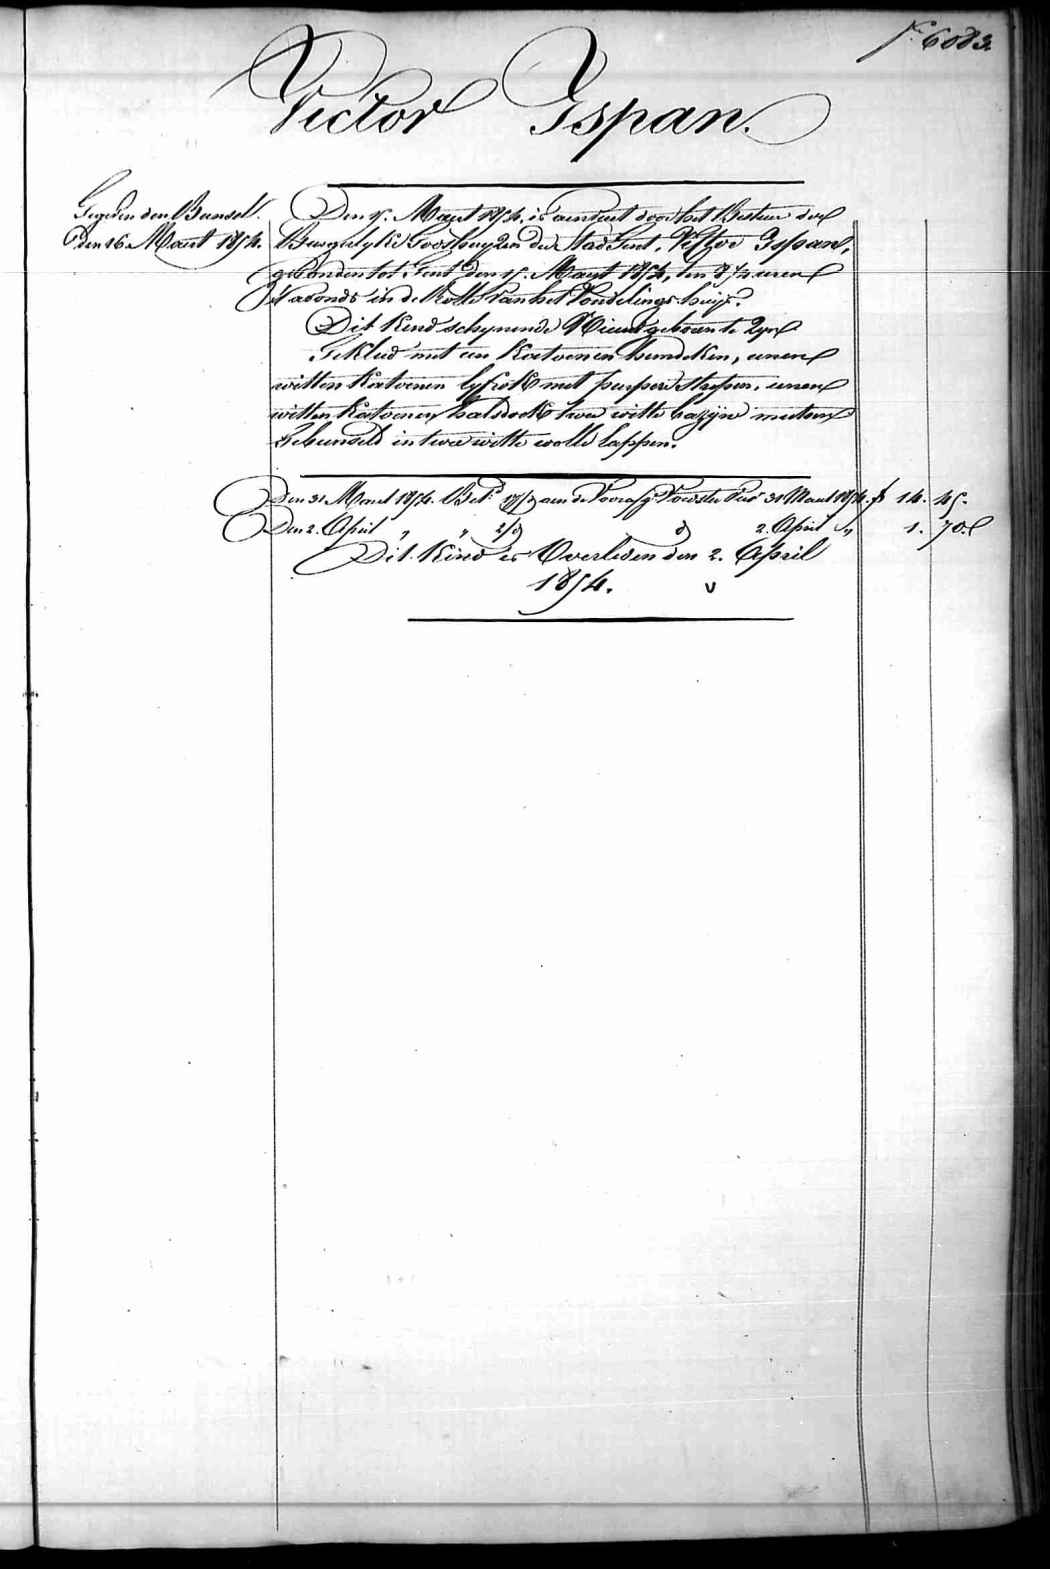 f.° 6083.
Victor Ispan.
Gegeven den Bunsel.
den 16 Maart 1854.
Den 15. Maart 1854, is aenveert door het Bestuer der
Burgerlyke Godshuyzen der Stad Gent, Victor Ispan,
gevonden tot Gent den 15. Maart 1854, ten 8 1/2 uren
's avonds in de Rolle van het Vondelings-huys.
Dit Kind schynende Nieuwgeboren te Zyn
Gekleed met een Katoenen hemdeken, eenen
witten Katoenen lyfrok met purpere strepen, eenen
witten Katoenen halsdoek twee witte bazyne mutsen
Gebunseld in twee witte wolle lappen.
Den 31 Maert 1854. Bet.d 17/d aen de Voorafg.e Voedster tot 31 Maart 1854. f 14. 45.
Den 2. April " " 2/d d° 2. April " 1. 70.
Dit Kind is Overleden den 2. April
1854. v